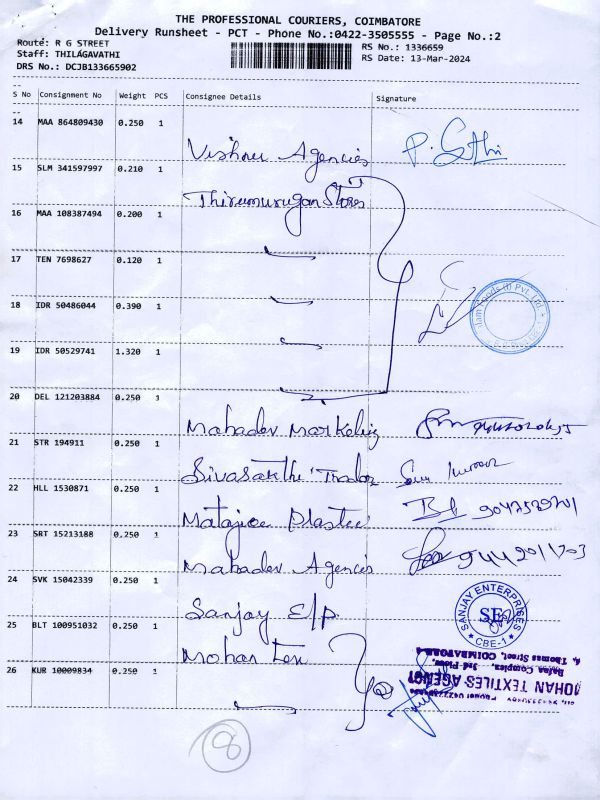 THE PROFESSIONAL COURIERS, COIMBATORE
Delivery Runsheet - PCT - Phone No.:0422-3505555 - Page No.:2
Route: R G STREET
RS No.: 1336659
Staff: THILAGAVATHI
RS Date: 13-Mar-2024
DRS No.: DCJB133665902
S No Consignment No Weight PCS Consignee Details Signature
14 MAA 864809430 0.250 1
Vishnu Agencies P. Sethi
15 SLM 341597997 0.210 1
Thirumurugan Stores
16 MAA 108387494 0.200 1
17 TEN 7698627 0.120 1
18 IDR 50486044 0.390 1
19 IDR 50529741 1.320 1
20 DEL 121203884 0.250 1
Mahadev Marketing
21 STR 194911 0.250 1
Sivasakthi Trador
22 HLL 1530871 0.250 1
Matajee Plastic
23 SRT 15213188 0.250 1
Mahadev Agencies
24 SVK 15042339 0.250 1
Sanjay E/P
SANJAY ENTERPRISES
SE
CBE-1
25 BLT 100951032 0.250 1
Mohan Tex
MOHAN TEXTILES AGENCY
Rajaa Complex, 3rd Floor,
Thomas Street, COIMBATORE
26 KUR 10009834 0.250 1
8